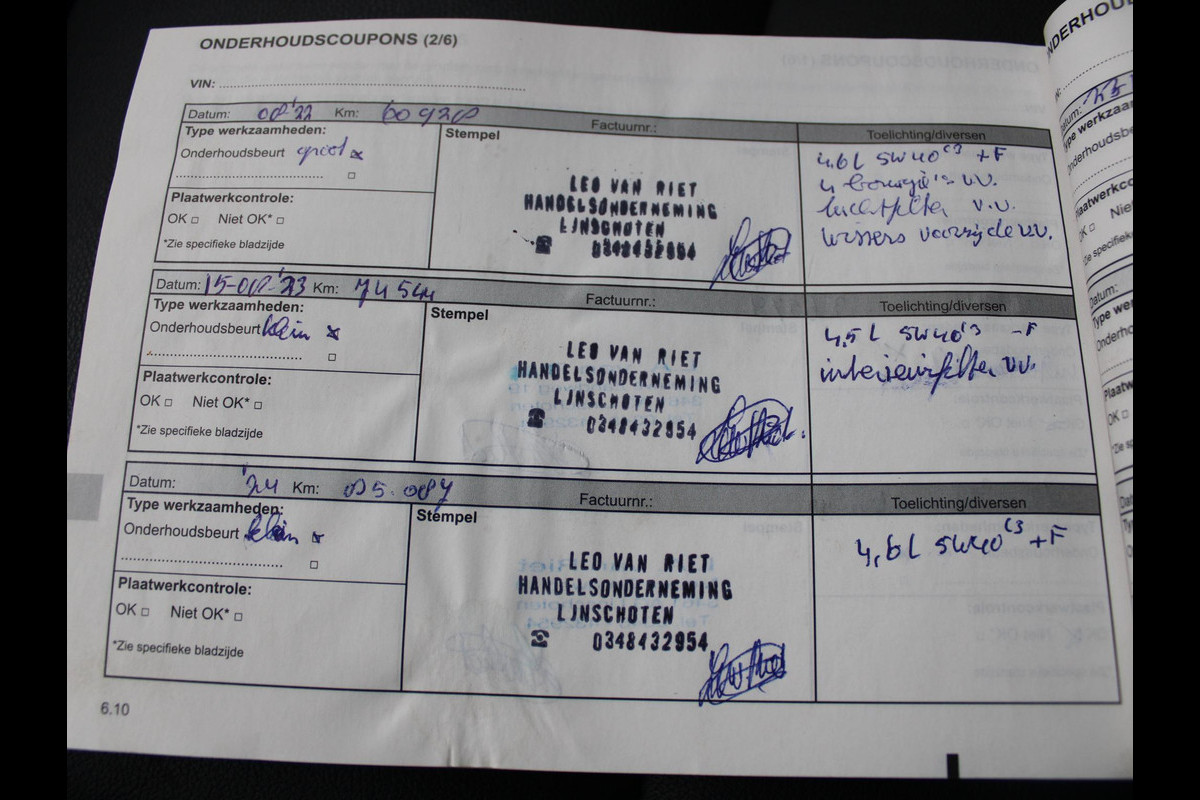 ONDERHOUDSCOUPONS (2/6)
VIN:
Datum: '22 Km: 60920 Factuurnr.:
Type werkzaamheden:
Onderhoudsbeurt groot x
Plaatwerkcontrole:
OK □ Niet OK* □
*Zie specifieke bladzijde
Stempel
LEO VAN RIET
HANDELSONDERNEMING
LINSCHOTEN
☎ 0348432954
Toelichting/diversen
4,6L 5W40 C3 +F
4 bougie's v.v.
luchtfilter v.v.
wissers voorzijde v.v.
Datum: 15-08-'23 Km: 74544 Factuurnr.:
Type werkzaamheden:
Onderhoudsbeurt klein x
Plaatwerkcontrole:
OK □ Niet OK* □
*Zie specifieke bladzijde
Stempel
LEO VAN RIET
HANDELSONDERNEMING
LINSCHOTEN
☎ 0348432954
Toelichting/diversen
4,5L 5W40 C3 -F
interieurfilter v.v.
Datum: '24 Km: Factuurnr.:
Type werkzaamheden:
Onderhoudsbeurt klein x
Plaatwerkcontrole:
OK □ Niet OK* □
*Zie specifieke bladzijde
Stempel
LEO VAN RIET
HANDELSONDERNEMING
LINSCHOTEN
☎ 0348432954
Toelichting/diversen
4,6L 5W40 C3 +F
6.10